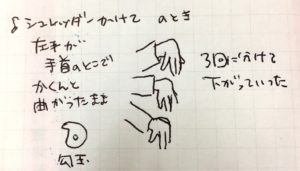 シュレッダーかけて のとき
左手が
手首のとこで
かくんと
曲がったまま
勾玉
3回にわけて
下がっていった